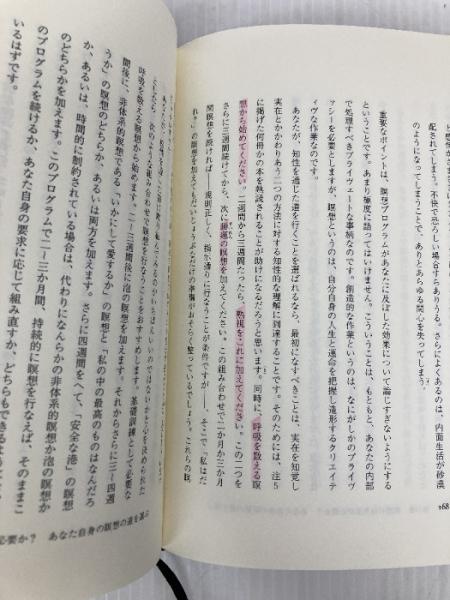 配されてしまう。不快で恐ろしい場合すらありうる。さらによくあるのは、内面生活が砂漠
のようになってしまうことで、ありとあらゆる関心を失ってしまう。
重要なポイントは、瞑想プログラムがあなたに及ぼした効果について論じすぎないようにする
ということです。あまり極度に語ってはいけません。こういうことは、もともと、あなたの内部
で処理すべきプライヴェートな事柄なのです。創造的な作業というのは、なにがしかのプライヴ
ァシーを必要としますが、瞑想というのは、自分自身の人生と運命を把握し造形するクリエイテ
ィヴな作業なのです。
あなたが、知性を通じた道を行くことを選ばれるなら、最初になすべきことは、実在を知覚し
実在とかかわりあう二つの方法に対する知性的な理解に到達することです。そのためには、注5
に掲げた何冊かの本を熟読されることが助けになるだろうと思います。同時に、呼吸を数える瞑
想から始めてください。二週間から三週間たったら、熟視をこれに加えてください。この二つを
さらに三週間続けてから、次に
の瞑想を加えてください。この組み合わせで二か月か三か月
間瞑想を続ければ――規則正しく、指示通りに行なうことが条件ですが――、そこで「私はだ
れ？」の瞑想を加えてもだいじょうぶなだけの準備がおそらく整っているでしょう。これらの瞑
168
呼吸を数える瞑想から始めます。二〜三週間後に泡の瞑想を加えます。それからさらに三〜四週
間後に、非体系的瞑想である「いかにして愛するか」の瞑想と「私の中の最高のものはなんだろ
うか」の瞑想のどちらか、あるいは両方を加えます。さらに四週間をへて、「安全な港」の瞑想
か、あるいは、時間的に制約されている場合は、代わりになんらかの非体系的瞑想か泡の瞑想か
のどちらかを加えます。このプログラムで二〜三か月間、持続的に瞑想を行なえば、そのままこ
のプログラムを続けるか、あなた自身の要求に応じて組み直すか、どちらもできるように
いるはずです。
必要か？　あなた自身の瞑想の道を選ぶ